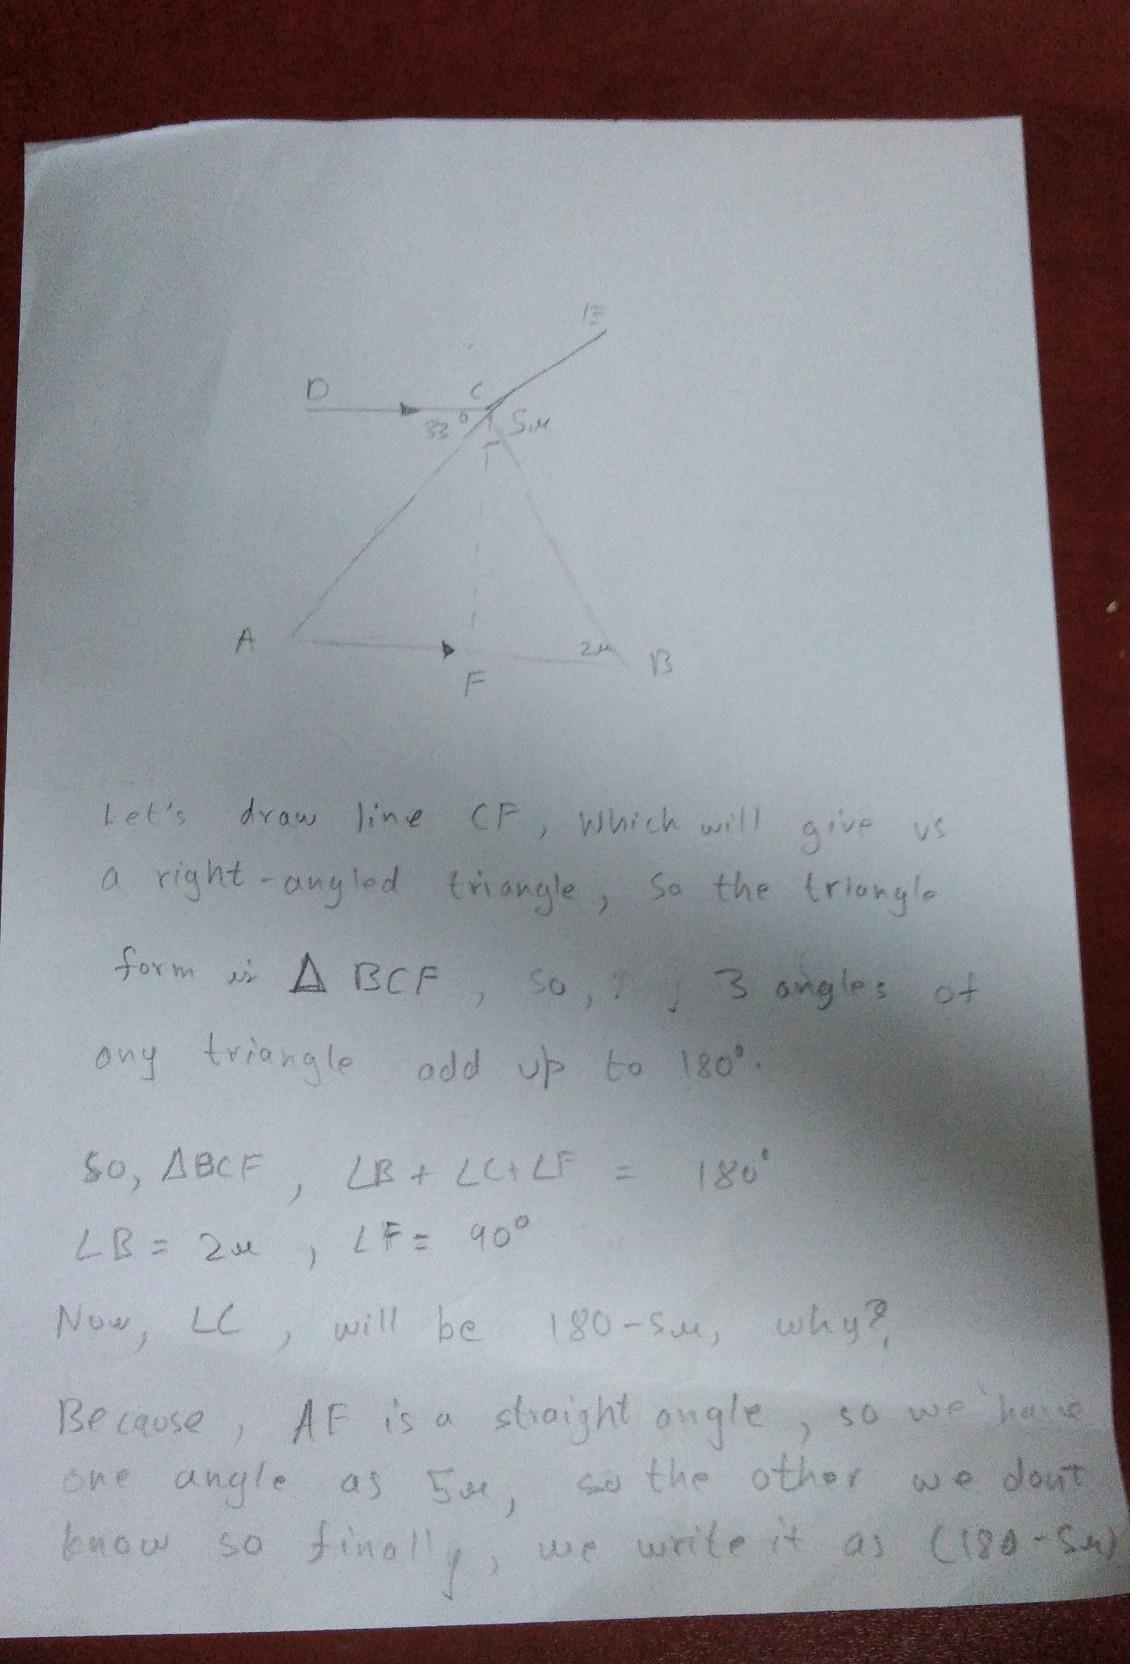 E
D
C
33°
5x
A
F
2x
B
Let's draw line CF, which will give us
a right-angled triangle, so the triangle
form is Δ BCF, so, 3 angles of
any triangle add up to 180°.
So, ΔBCF, ∠B + ∠C + ∠F = 180°
∠B = 2x, ∠F = 90°
Now, ∠C, will be 180-5x, why?
Because, AE is a straight angle, so we have
one angle as 5x, so the other we dont
know so finally, we write it as (180-5x)